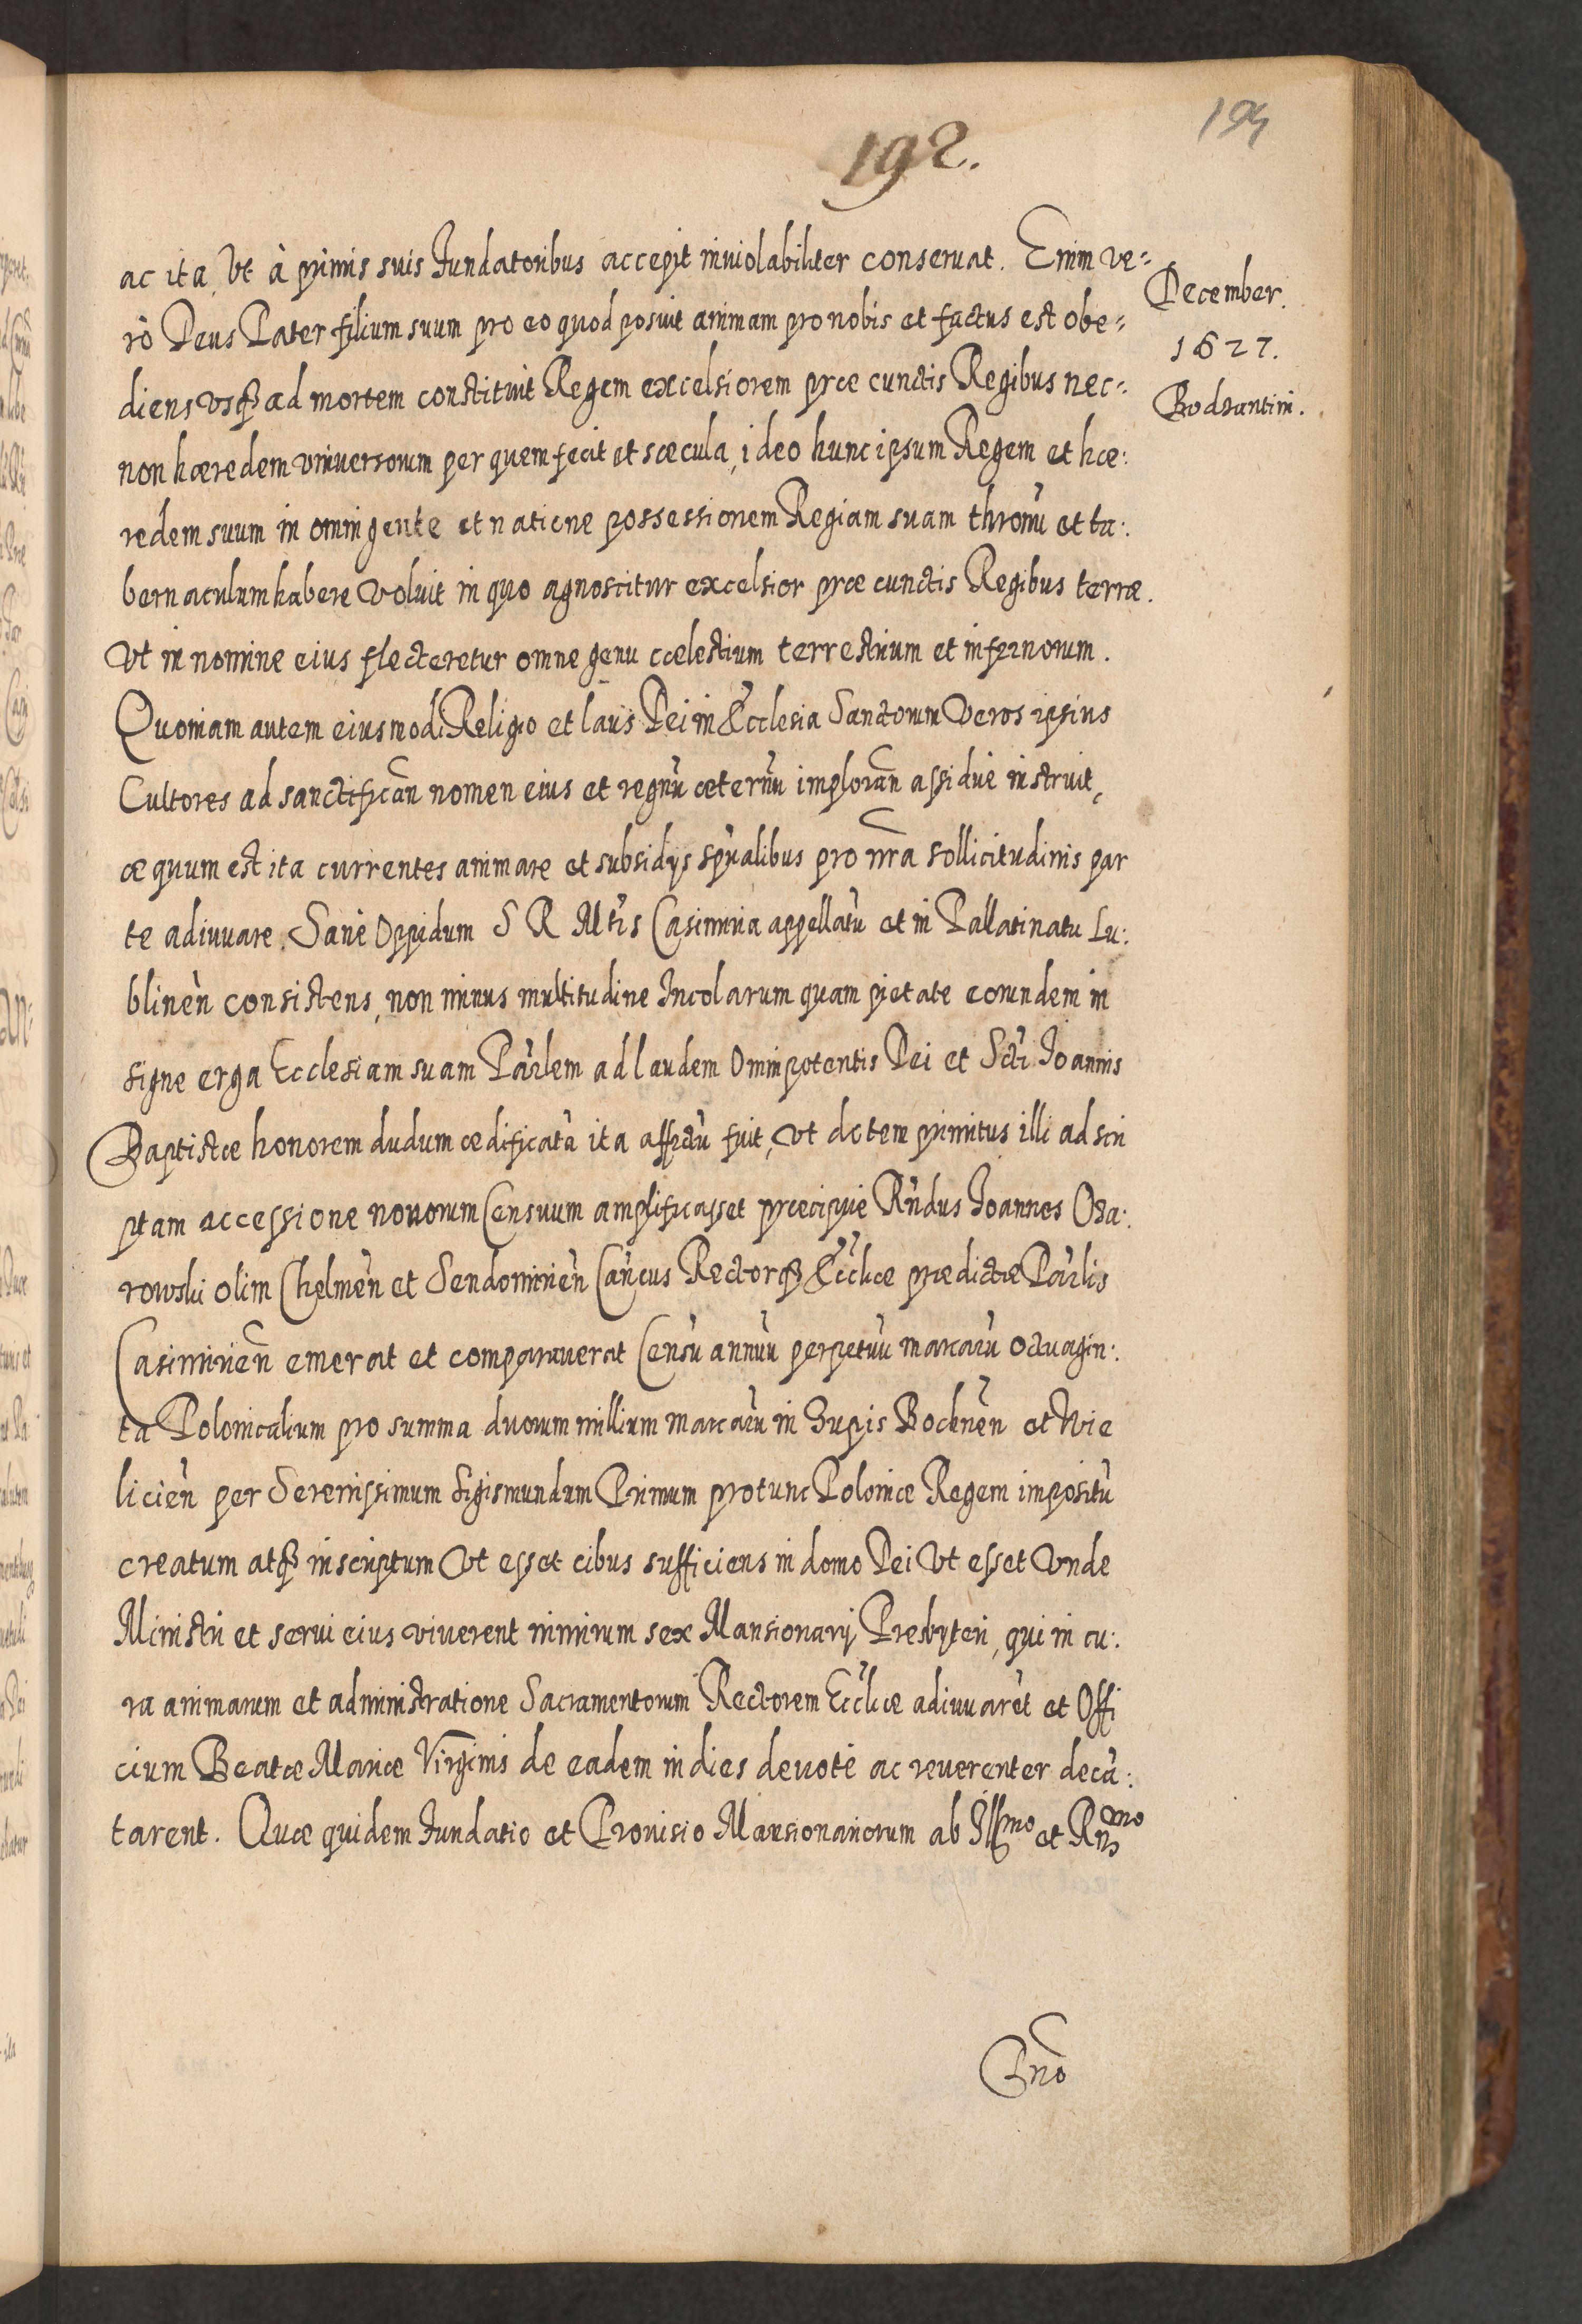 194
192.
ac ita, Ut à primis suis Fundatoribus accepit inviolabiliter conservat. Enim ve=
rò Deus Pater filium suum pro eo quod posuit animam pro nobis et factus est obe=
diens usq̃ ad mortem constituit Regem excelsiorem præ cunctis Regibus nec=
non hæredem universorum per quem fecit et sæcula, ideo hunc ipsum Regem et hæ:
redem suum in omni gente et natione possessionem Regiam suam thronũ et ta:
bernaculum habere voluit in quo agnoscitur excelsior præ cunctis Regibus terræ.
Ut in nomine eius flecteretur omne genu cœlestium terrestrium et infernorum.
Quoniam autem eiusmodi Religio et laus Dei in Ecclesia Sanctorum Veros ipsius
Cultores ad sanctifican̄ nomen eius et regnũ æternũ imploran̄ assidue instruit,
æquum est ita currentes animare et subsidijs spũalibus pro nr̃a sollicitudinis par
te adiuuare. Sane Oppidum S R Mt̃is Casimiria appellatũ et in Pallatinatu Lu:
blineñ consistens, non minus multitudine Incolarum quam pietate eorundem in
signe erga Ecclesiam suam Par̃lem ad laudem Omnipotentis Dei et Scti Joannis
Baptistæ honorem dudum ædificatã ita affectũ fuit, ut dotem primitus illi adscri
ptam accessione novorum Censuum amplificasset præcipue Rñdus Joannes Oża:
rowski olim Chelmeñ et Sendomirieñ Cañcus Rectorq̃ Eccl̃iæ prædictæ Par̃lis
Casimirieñ emerat et comparaverat Censũ annuũ perpetuũ marcarũ octuagin:
ta Polonicalium pro summa duorum millium marcarũ in Zupis Bochneñ et Wie
licieñ per Serenissimum Sigismundum Primum protunc Poloniæ Regem impositũ
creatum atq̃ inscriptum Ut esset cibus sufficiens in domo Dei Ut esset Unde
Ministri et servi eius viverent nimirum sex Mansionarij Presbyteri, qui in cu:
ra animarum et administratione Sacramentorum Rectorem Eccl̃iæ adiuuarẽt et Offi
cium Beatæ Mariæ Virginis de eadem in dies devotè ac reverenter decã:
tarent. Quæ quidem Fundatio et Provisio Mansionariorum ab Illmo et Rñmo
Dño
December.
1627.
Bodzantini.